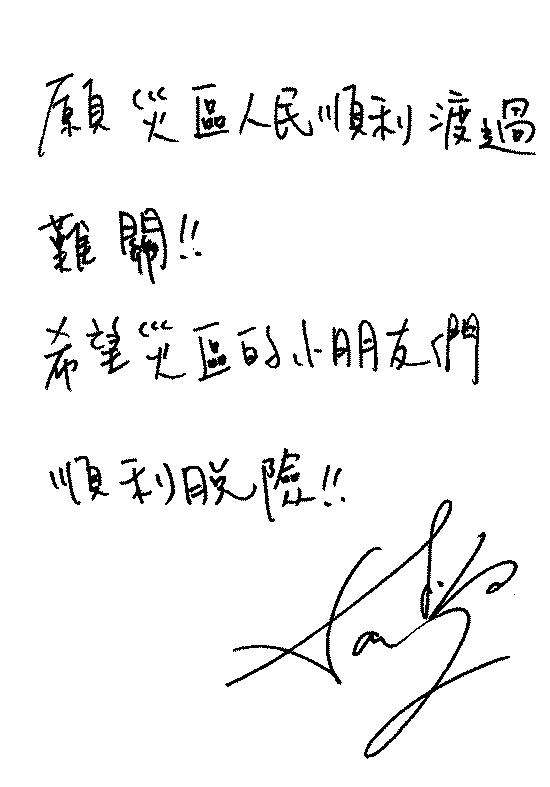 願災區人民順利渡過
難關!!
希望災區的小朋友們
順利脫險!!